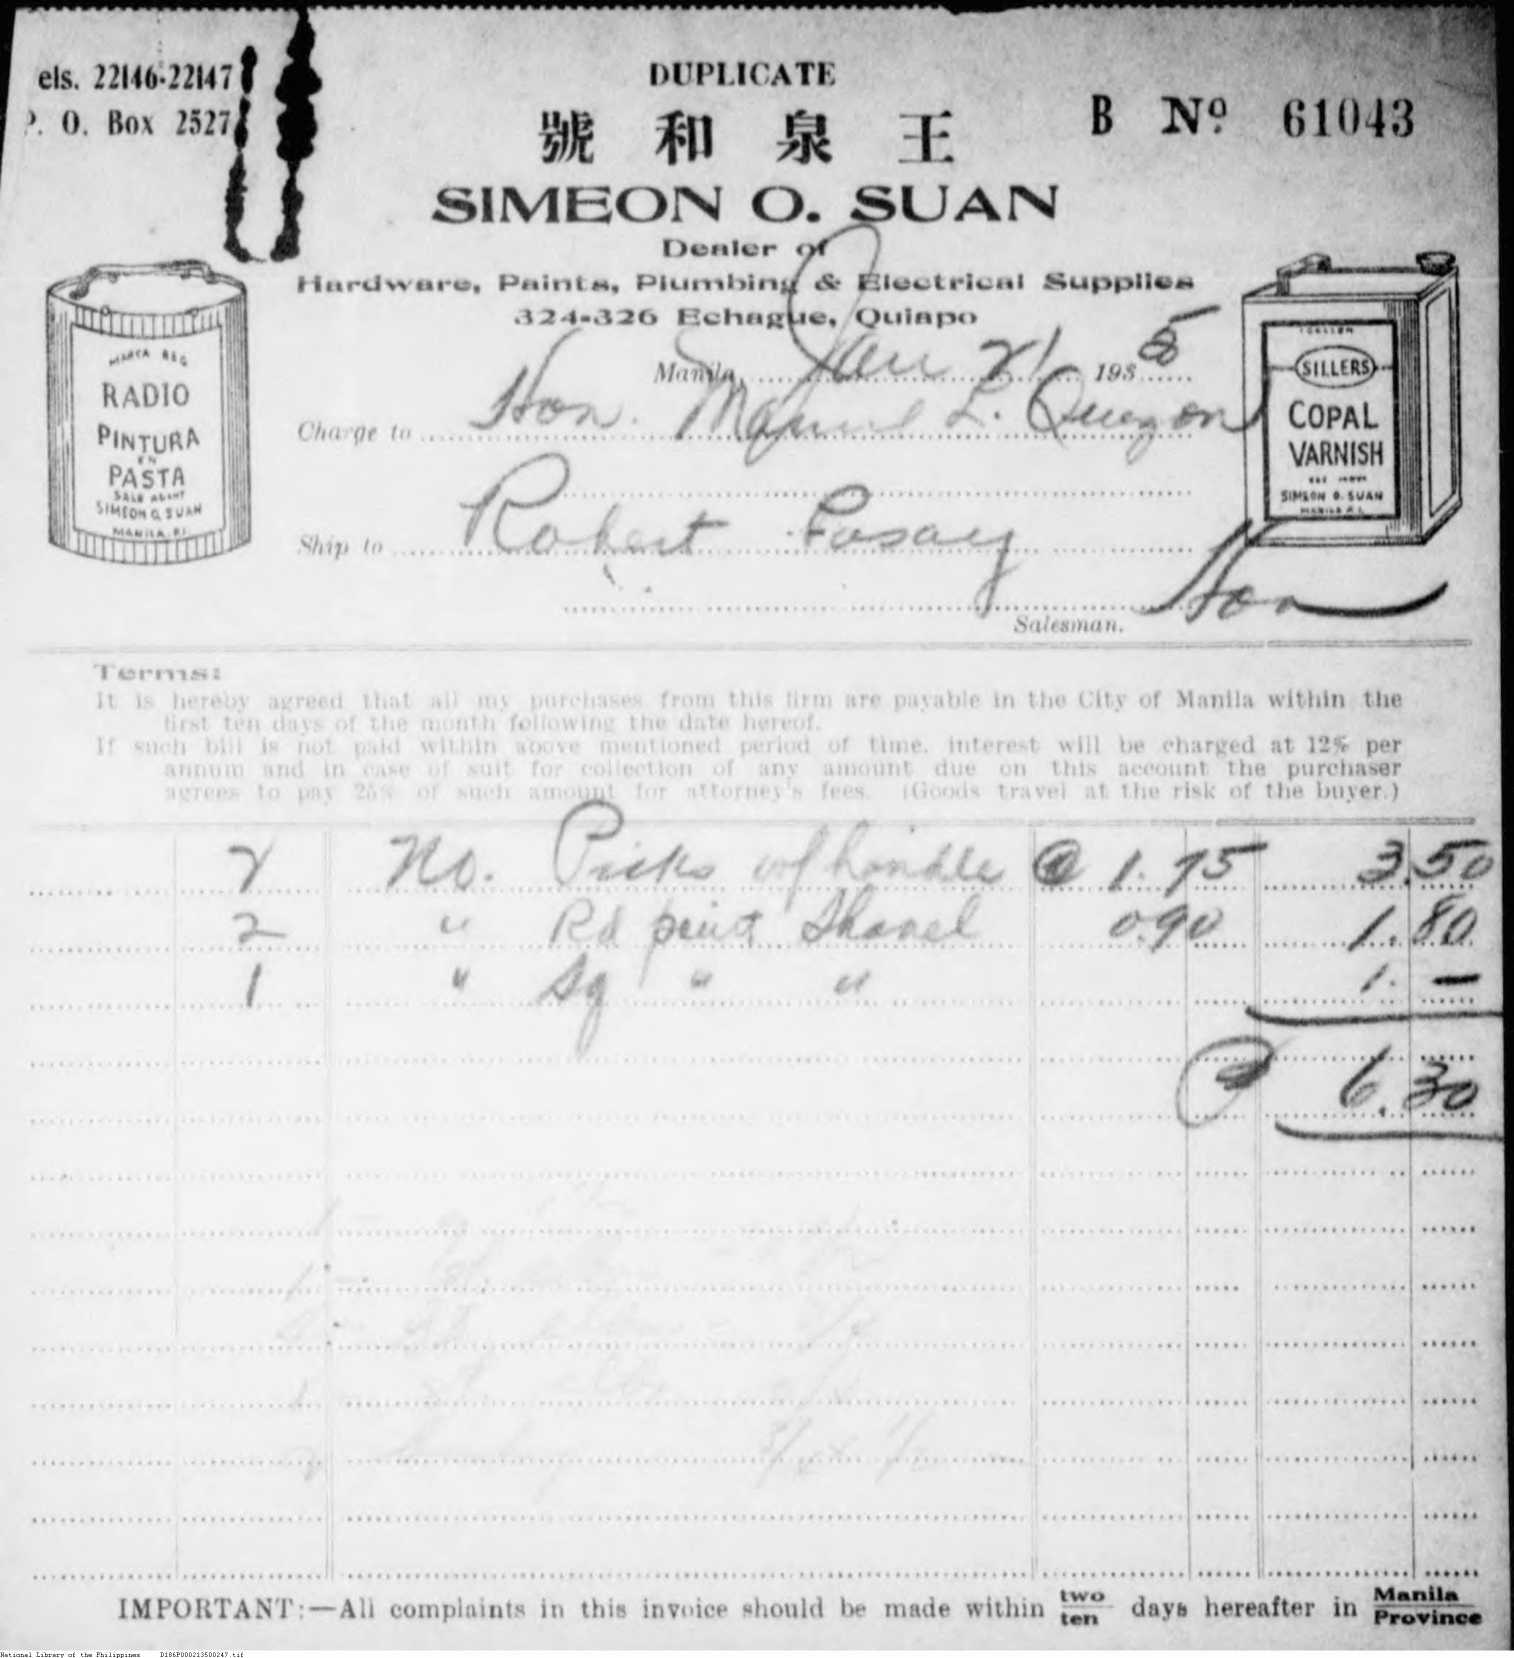 els. 22146-22147
P. O. Box 2527
DUPLICATE
B Nº 61043
號和泉王
SIMEON O. SUAN
Dealer of
Hardware, Paints, Plumbing & Electrical Supplies
324-326 Echague, Quiapo
Manila, Jan 21 1935
Charge to Hon. Manuel L. Quezon
Ship to Robert Pasay
Salesman.
MARCA REG
RADIO
PINTURA
EN
PASTA
SALE AGENT
SIMEON O. SUAN
MANILA, P.I.
1 GALLON
SILLERS
COPAL
VARNISH
SIMEON O. SUAN
MANILA P.I.
Terms:
It is hereby agreed that all my purchases from this firm are payable in the City of Manila within the
first ten days of the month following the date hereof.
If such bill is not paid within above mentioned period of time, interest will be charged at 12% per
annum and in case of suit for collection of any amount due on this account the purchaser
agrees to pay 25% of such amount for attorney's fees. (Goods travel at the risk of the buyer.)
2 No. Picks w/ handle @ 1.75 3.50
2 " Rd point Shovel 0.90 1.80
1 " Sq " " 1. —
6.30
IMPORTANT:—All complaints in this invoice should be made within two ten days hereafter in Manila Province
National Library of the Philippines D186P000213500247.tif